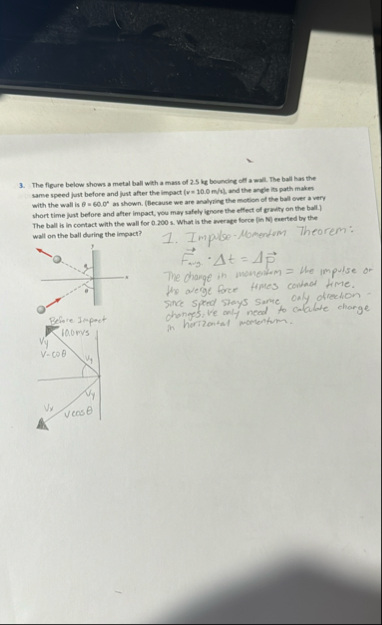 3. The figure below shows a metal ball with a mass of 2.5 kg bouncing off a wall. The ball has the
same speed just before and just after the impact (v = 10.0 m/s), and the angle its path makes
with the wall is θ = 60.0° as shown. (Because we are analyzing the motion of the ball over a very
short time just before and after impact, you may safely ignore the effect of gravity on the ball.)
The ball is in contact with the wall for 0.200 s. What is the average force (in N) exerted by the
wall on the ball during the impact?
1. Impulse-Momentum Theorem:
· Δt = Δp⃗
The change in momentum = the impulse or
the averge force times contact time.
Since speed stays same only direction
changes, we only need to calculate change
in horizontal momentum.
y
x
θ
θ
Before Impact
10.0 m/s
Vy
V-cosθ
Vy
Vy
Vx
V cos θ